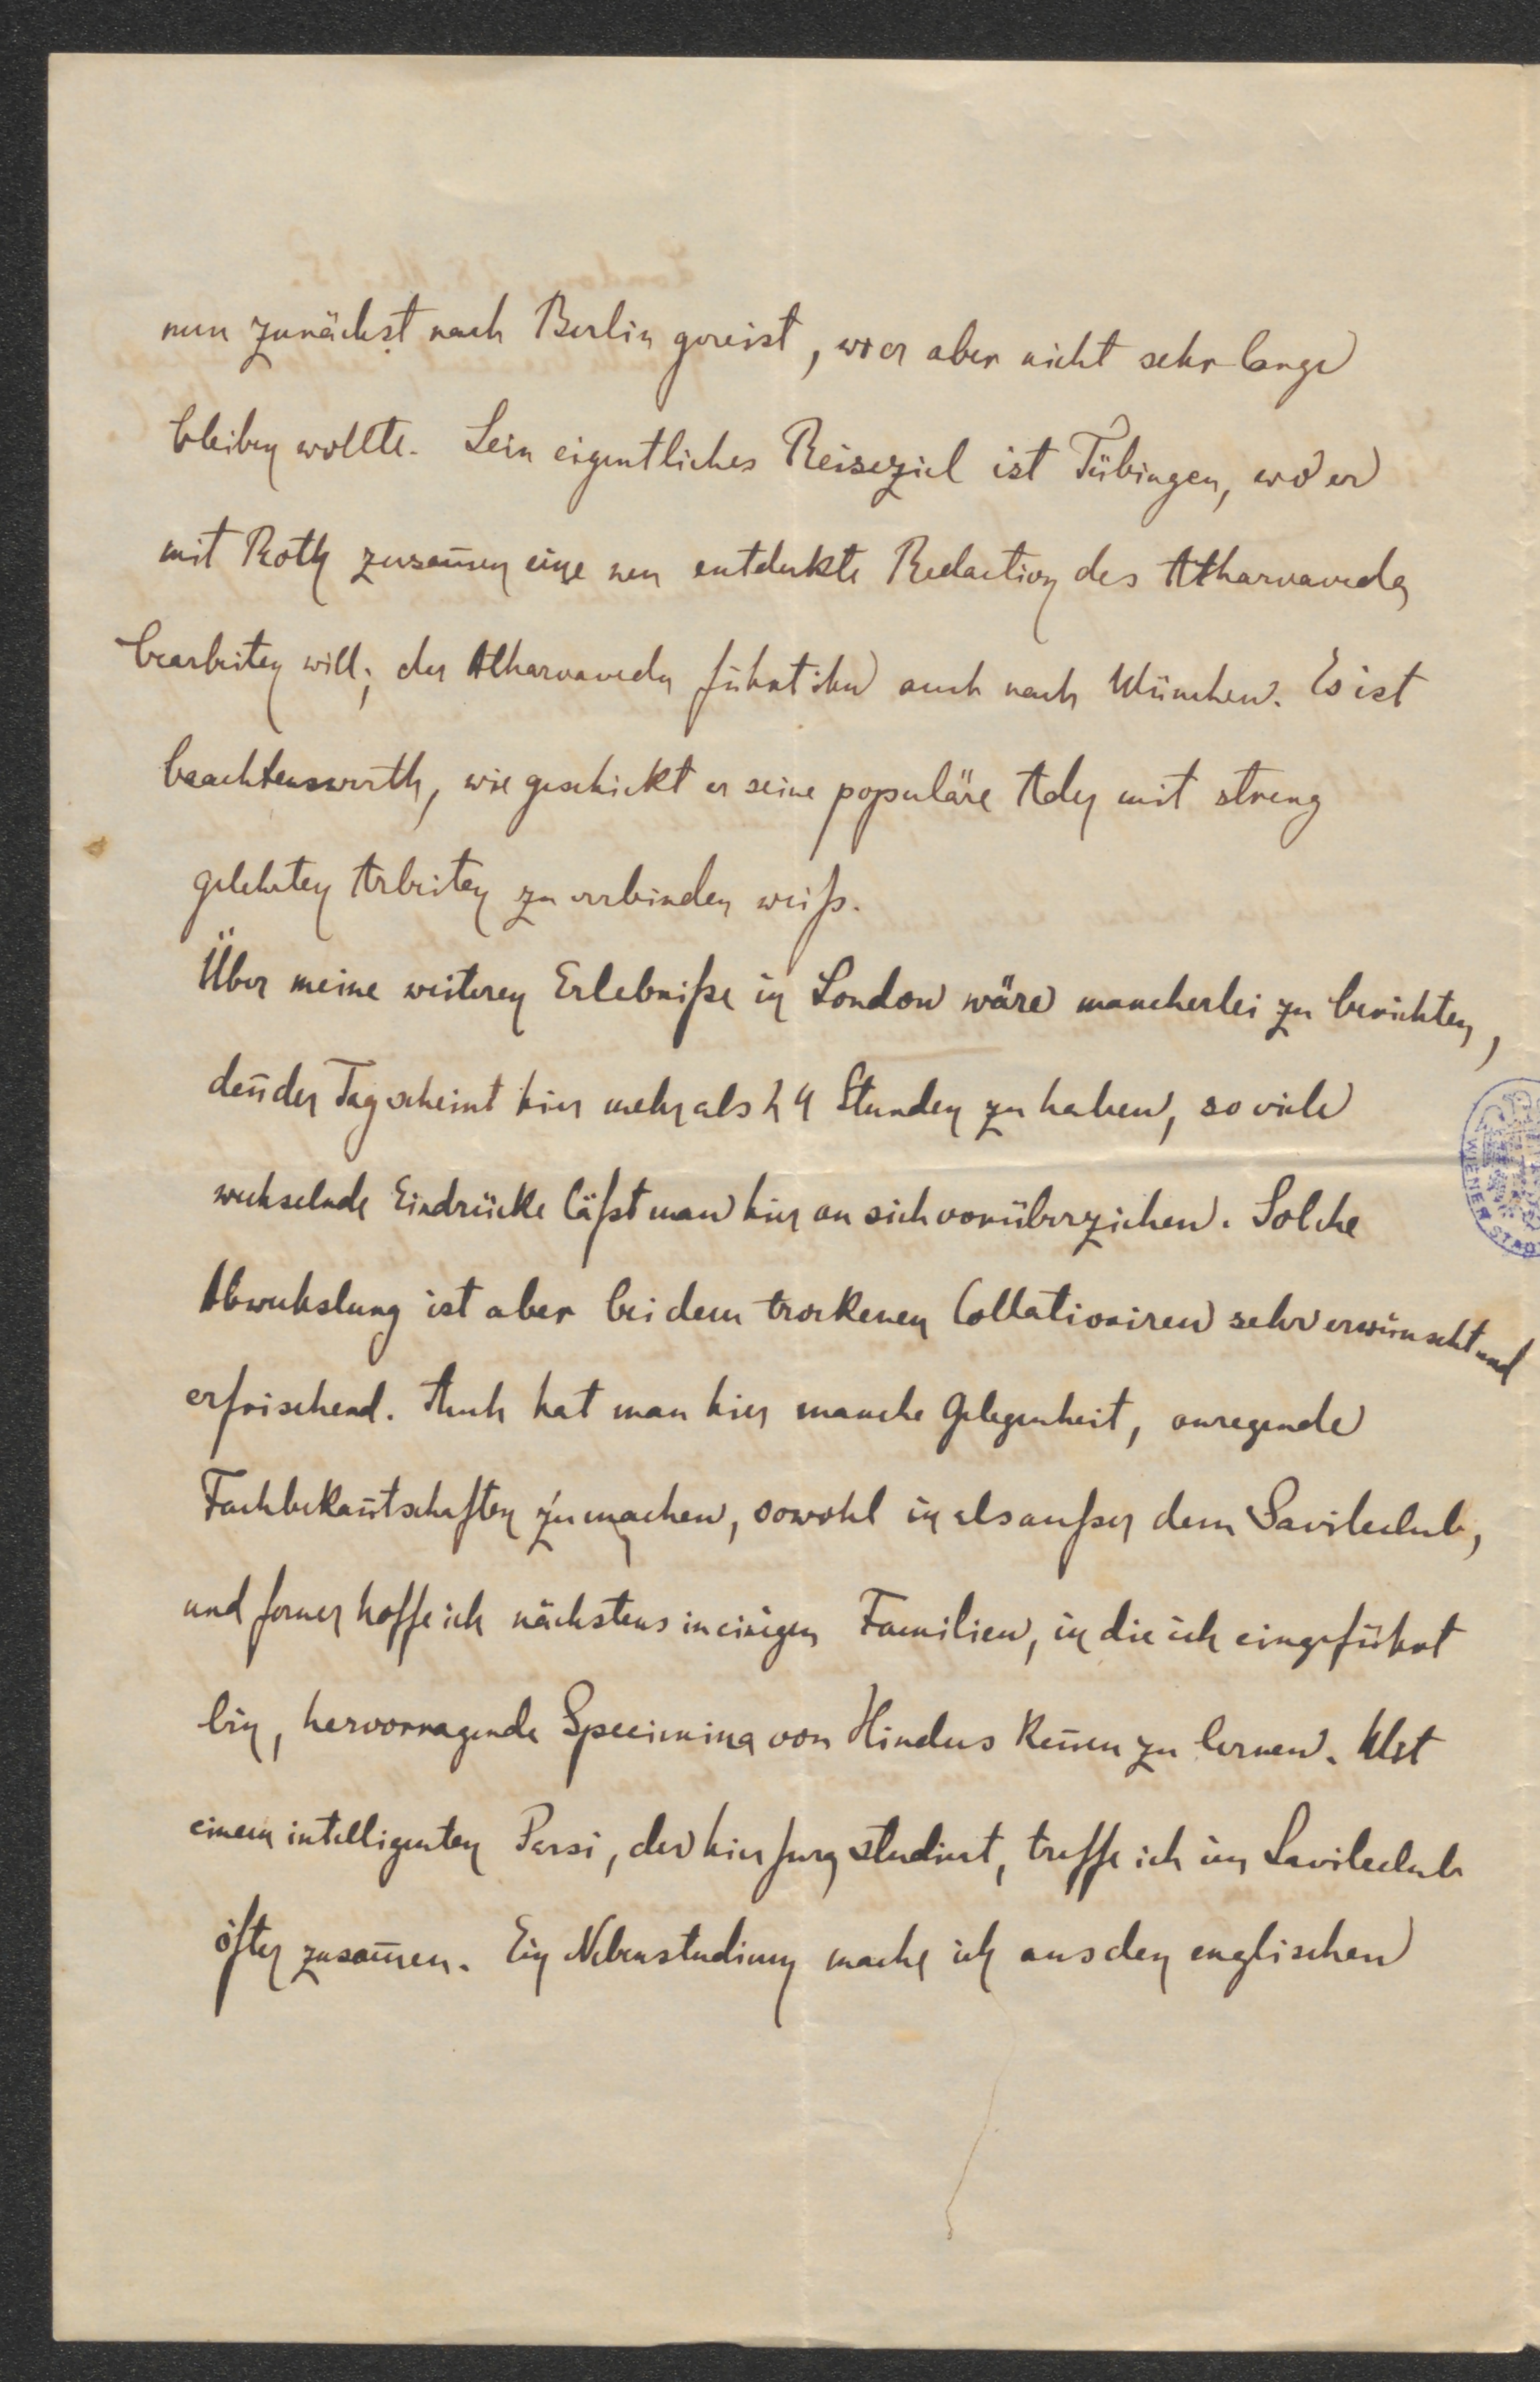 nun zunächst nach Berlin gereist, wo er aber nicht sehr lange
bleiben wollte. Sein eigentliches Reiseziel ist Tübingen, wo er
mit Roth zusam̄en eine neu entdekte Redaction des Atharvaveda
bearbeiten will; der Atharvaveda führt ihn auch nach München. Es ist
beachtenswerth, wie geschickt er seine populäre Ader mit streng
gelehrten Arbeiten zu verbinden weiß.
Über meine weiteren Erlebniße in London wäre mancherlei zu berichten,
den̄ der Tag scheint hier mehr als 24 Stunden zu haben, so viele
wechselnde Eindrücke läßt man hier an sich vorüberziehen. Solche
Abwechslung ist aber bei dem trockenen Collationiren sehr erwünscht und
erfrischend. Auch hat man hier manche Gelegenheit, anregende
Fachbekan̄tschaften zu machen, sowohl in als außer dem Savileclub,
und ferner hoffe ich nächstens in einigen Familien, in die ich eingeführt
bin, hervorragende Specimina von Hindus ken̄en zu lernen. Mit
einem intelligenten Parsi, der hier jura studiert, treffe ich im Savileclub
öfter zusam̄en. Ein Nebenstudium mache ich aus den englischen
WIENER STAD